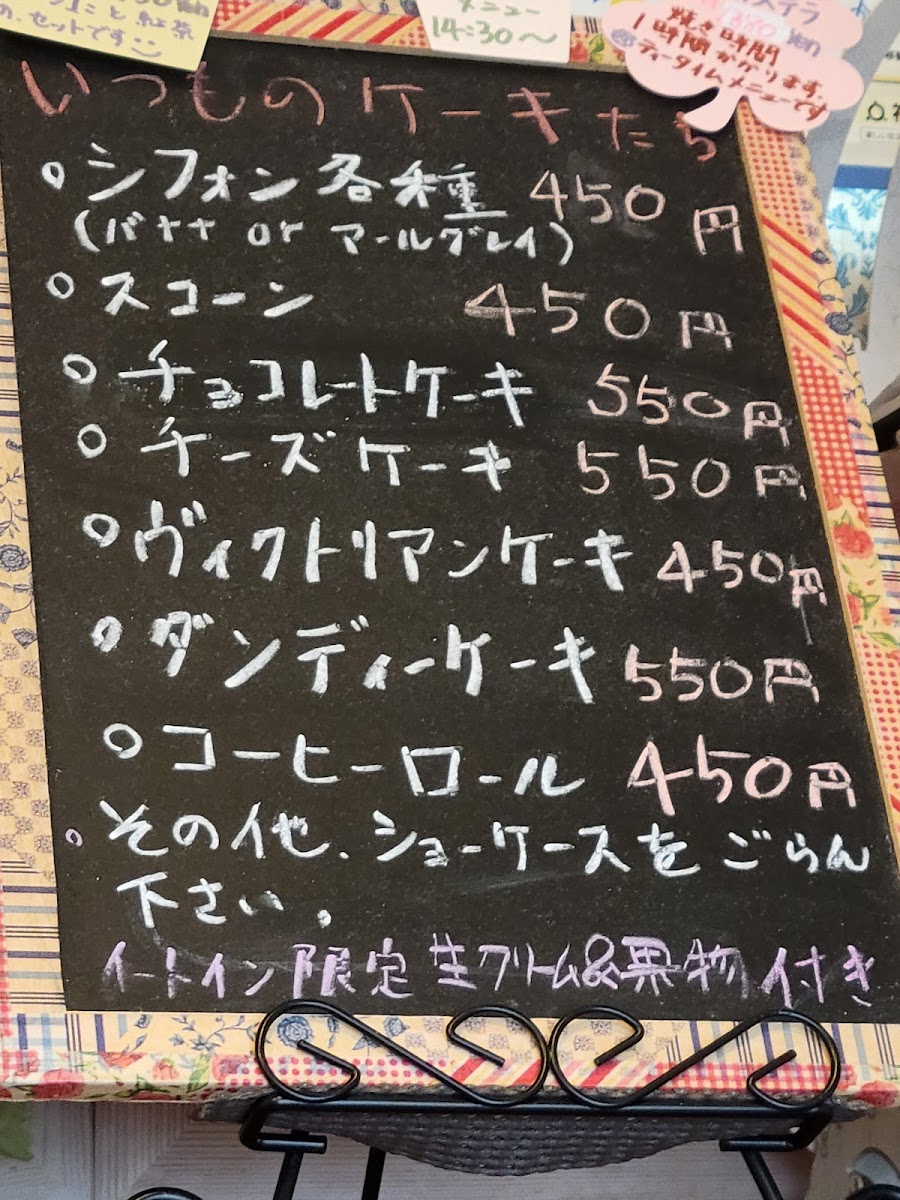 と紅茶
のセットです
メニュー
14:30〜
ステラ
380
焼き時間
1時間かかります。
ティータイムメニューです
いつものケーキたち
○シフォン各種 450円
(バナナ or アールグレイ)
○スコーン 450円
○チョコレートケーキ 550円
○チーズケーキ 550円
○ヴィクトリアンケーキ 450円
○ダンディーケーキ 550円
○コーヒーロール 450円
○その他、ショーケースをごらん
下さい。
イートイン限定生クリーム&果物付き